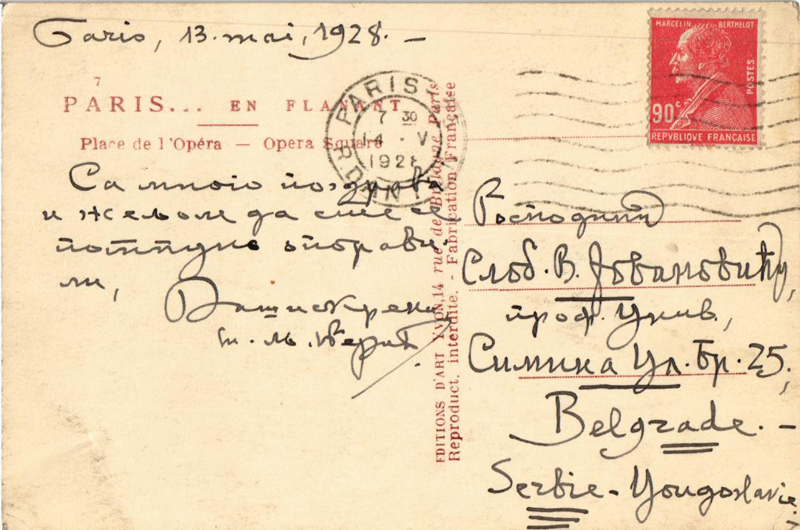 Paris, 13. mai, 1928. –
7
PARIS... EN FLANANT
Place de l'Opéra — Opera Square
PARIS
7 30
14 - V
1928
MARCELIN BERTHELOT
POSTES
90 c
REPVBLIQUE FRANÇAISE
Са много поздрава
и жељом да сте се
потпуно оправи-
ли,
Ваш искрени
EDITIONS D'ART YVON, 14 rue de Bretagne, Paris
Reproduct. interdite. - Fabrication Française
Господин
Слоб. В. Јовановићу,
проф. Унив.,
Симина Ул. Бр. 25,
Belgrade. –
Serbie - Yougoslavie.